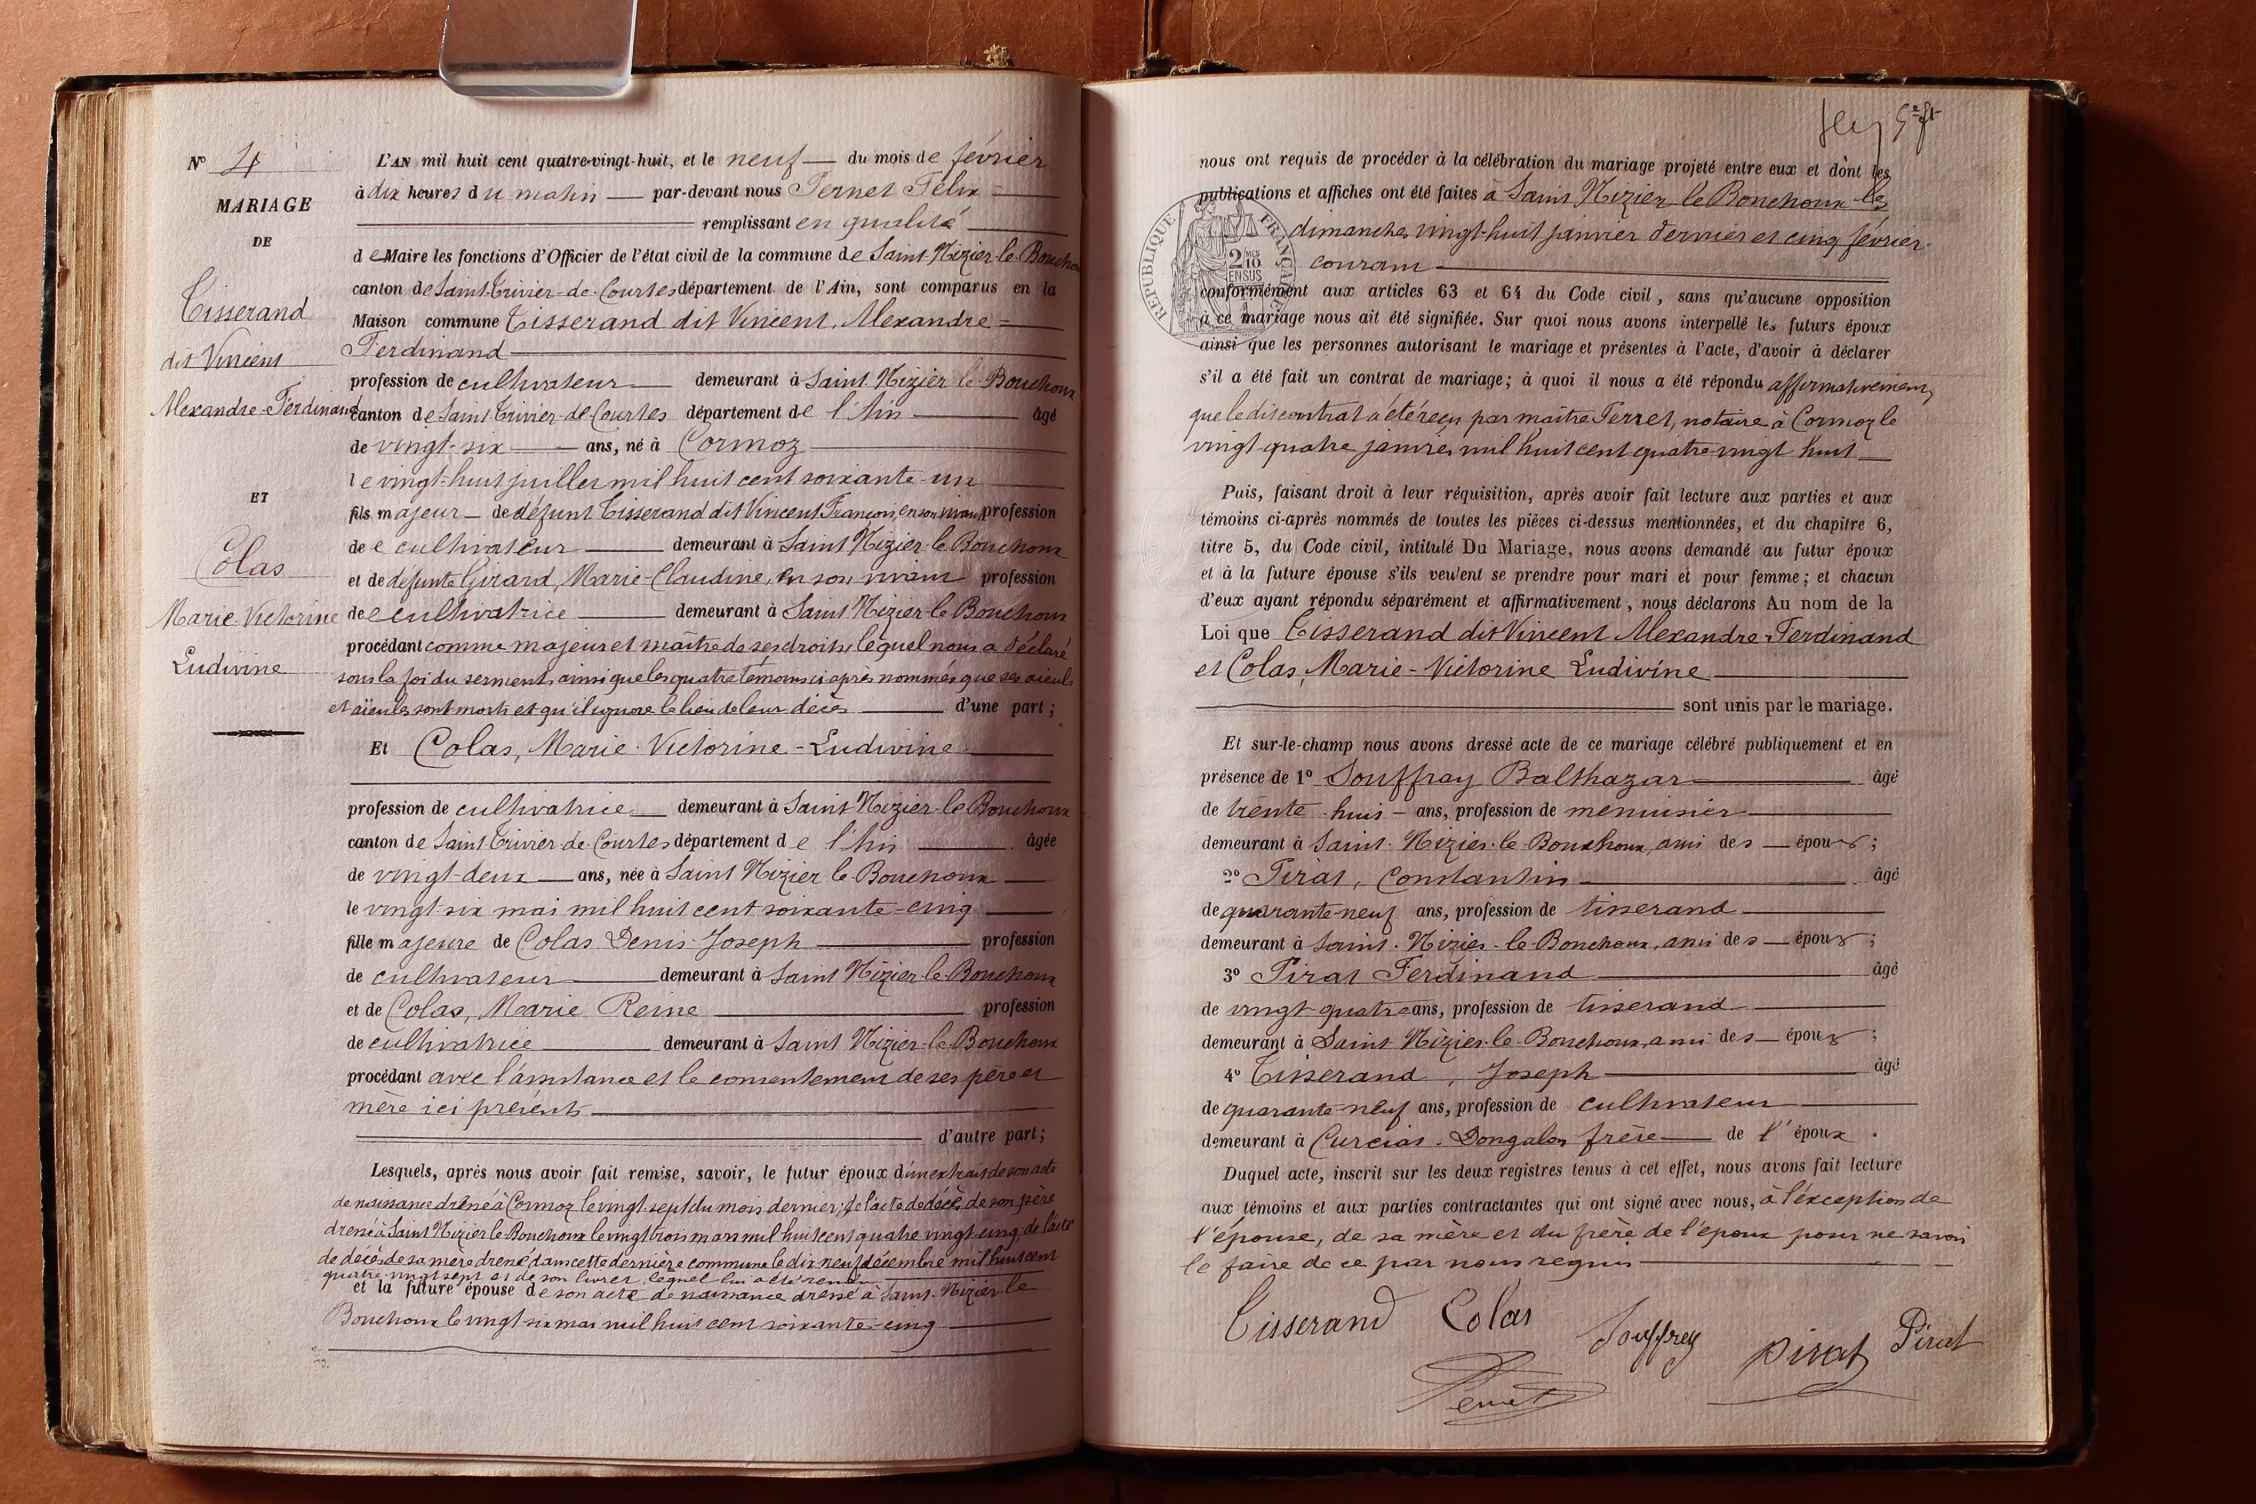 N° 4
MARIAGE
DE
Tisserand
dit Vincent
Alexandre-Ferdinand
ET
Colas
Marie-Victorine
Ludivine
L'AN mil huit cent quatre-vingt-huit, et le neuf du mois de février
à dix heures du matin par-devant nous Félix
remplissant en qualité
de Maire les fonctions d'Officier de l'état civil de la commune de Saint-Nizier-le-Bouchoux
canton de Saint-Trivier-de-Courtes département de l'Ain, sont comparus en la
Maison commune Tisserand dit Vincent, Alexandre=
Ferdinand
profession de cultivateur demeurant à Saint Nizier le Bouchoux
canton de Saint Trivier-de-Courtes département de l'Ain âgé
de vingt-six ans, né à Cormoz
le vingt-huit juillet mil huit cent soixante-un
fils majeur de défunt Tisserand dit Vincent François, en son vivant profession
de cultivateur demeurant à Saint Nizier-le-Bouchoux
et de défunte Girard, Marie-Claudine, en son vivant profession
de cultivatrice demeurant à Saint Nizier-le-Bouchoux
procédant comme majeur et maître de ses droits, lequel nous a déclaré
sous la foi du serment, ainsi que les quatre témoins ci après nommés que ses aïeuls
et aïeules sont morts et qu'il ignore le lieu de leur décès d'une part;
Et Colas, Marie-Victorine-Ludivine
profession de cultivatrice demeurant à Saint Nizier-le Bouchoux
canton de Saint Trivier-de-Courtes département de l'Ain âgée
de vingt-deux ans, née à Saint Nizier le Bouchoux
le vingt-six mai mil huit cent soixante-cinq
fille majeure de Colas Denis-Joseph profession
de cultivateur demeurant à Saint Nizier-le-Bouchoux
et de Colas, Marie Reine profession
de cultivatrice demeurant à Saint Nizier-le-Bouchoux
procédant avec l'assistance et le consentement de ses père et
mère ici présents
d'autre part;
Lesquels, après nous avoir fait remise, savoir, le futur époux d'un extrait de son acte
de naissance dressé à Cormoz le vingt-sept du mois dernier; de l'acte de décès de son père
dressé à Saint Nizier le Bouchoux le vingt trois mars mil huit cent quatre vingt-cinq, de l'acte
de décès de sa mère dressé dans cette dernière commune le dix neuf décembre mil huit cent
quatre-vingt sept et de son livret, lequel lui a été rendu
et la future épouse de son acte de naissance dressé à Saint-Nizier le
Bouchoux le vingt-six mai mil huit cent soixante-cinq
nous ont requis de procéder à la célébration du mariage projeté entre eux et dont les
publications et affiches ont été faites à Saint Nizier le Bouchoux les
dimanches vingt-huit janvier dernier et cinq février
courant
RÉPUBLIQUE FRANÇAISE
2 MES 10 EN SUS
conformément aux articles 63 et 64 du Code civil, sans qu'aucune opposition
à ce mariage nous ait été signifiée. Sur quoi nous avons interpellé les futurs époux
ainsi que les personnes autorisant le mariage et présentes à l'acte, d'avoir à déclarer
s'il a été fait un contrat de mariage; à quoi il nous a été répondu affirmativement,
que le dit contrat a été reçu par maître notaire à Cormoz le
vingt-quatre janvier mil huit cent quatre vingt huit
Puis, faisant droit à leur réquisition, après avoir fait lecture aux parties et aux
témoins ci-après nommés de toutes les pièces ci-dessus mentionnées, et du chapitre 6,
titre 5, du Code civil, intitulé Du Mariage, nous avons demandé au futur époux
et à la future épouse s'ils veulent se prendre pour mari et pour femme; et chacun
d'eux ayant répondu séparément et affirmativement, nous déclarons Au nom de la
Loi que Tisserand dit Vincent Alexandre-Ferdinand
et Colas, Marie-Victorine Ludivine
sont unis par le mariage.
Et sur-le-champ nous avons dressé acte de ce mariage célébré publiquement et en
présence de 1° Souffray Balthazar âgé
de trente-huit ans, profession de menuisier
demeurant à Saint-Nizier-le-Bouchoux, ami des époux;
2° Pirat, Constantin âgé
de quarante-neuf ans, profession de tisserand
demeurant à Saint-Nizier-le-Bouchoux, ami des époux;
3° Pirat Ferdinand âgé
de vingt-quatre ans, profession de tisserand
demeurant à Saint-Nizier-le-Bouchoux, ami des époux;
4° Tisserand, Joseph âgé
de quarante-neuf ans, profession de cultivateur
demeurant à Curciat-Dongalon frère de l'époux.
Duquel acte, inscrit sur les deux registres tenus à cet effet, nous avons fait lecture
aux témoins et aux parties contractantes qui ont signé avec nous, à l'exception de
l'épouse, de sa mère et du frère de l'époux pour ne savoir
le faire de ce par nous requis
Tisserand Colas Souffrey Pirat Pirat